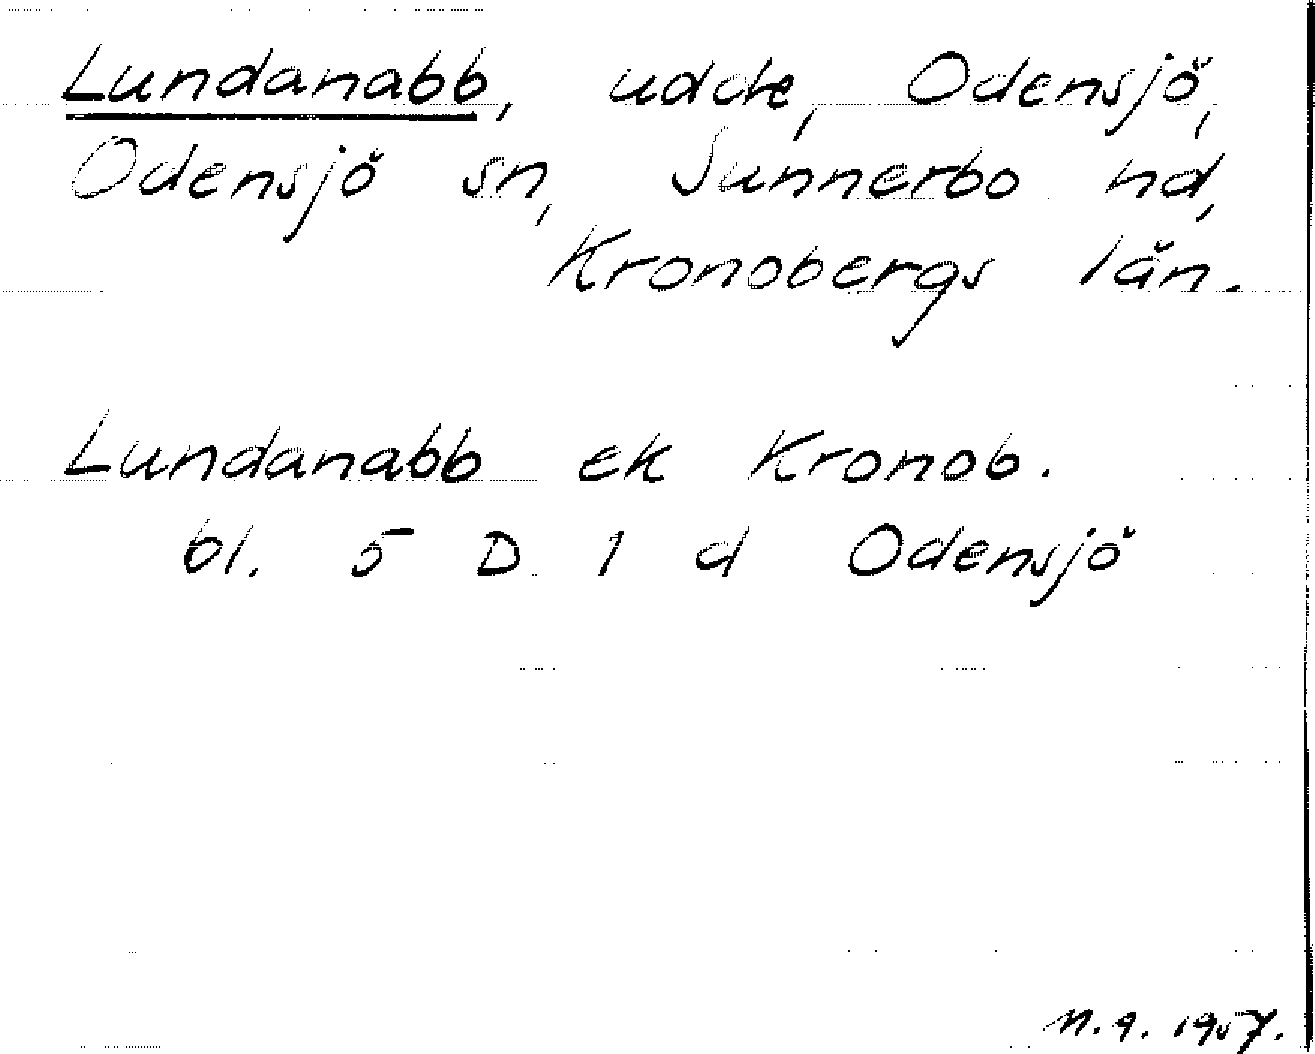 Lundanabb, udde, Odensjö,
Odensjö sn, Sunnerbo hd,
Kronobergs län.
Lundanabb ek Kronob.
bl. 5 D 1 d Odensjö
n.q. 1957.